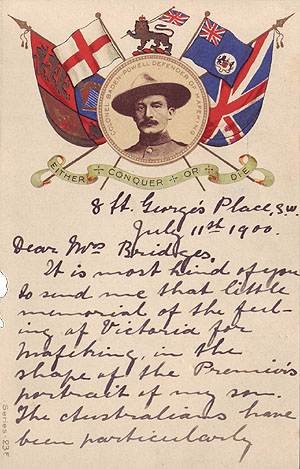 COLONEL BADEN-POWELL DEFENDER OF MAFEKING
EITHER CONQUER OR DIE
8 St. George's Place, S.W.
July 11th 1900.
Dear Mrs Bridges,
It is most kind of you
to send me that little
memorial of the feel-
ing of Victoria for
Mafeking, in the
shape of the Premier's
portrait of my son.
The Australians have
been particularly
Series-23F